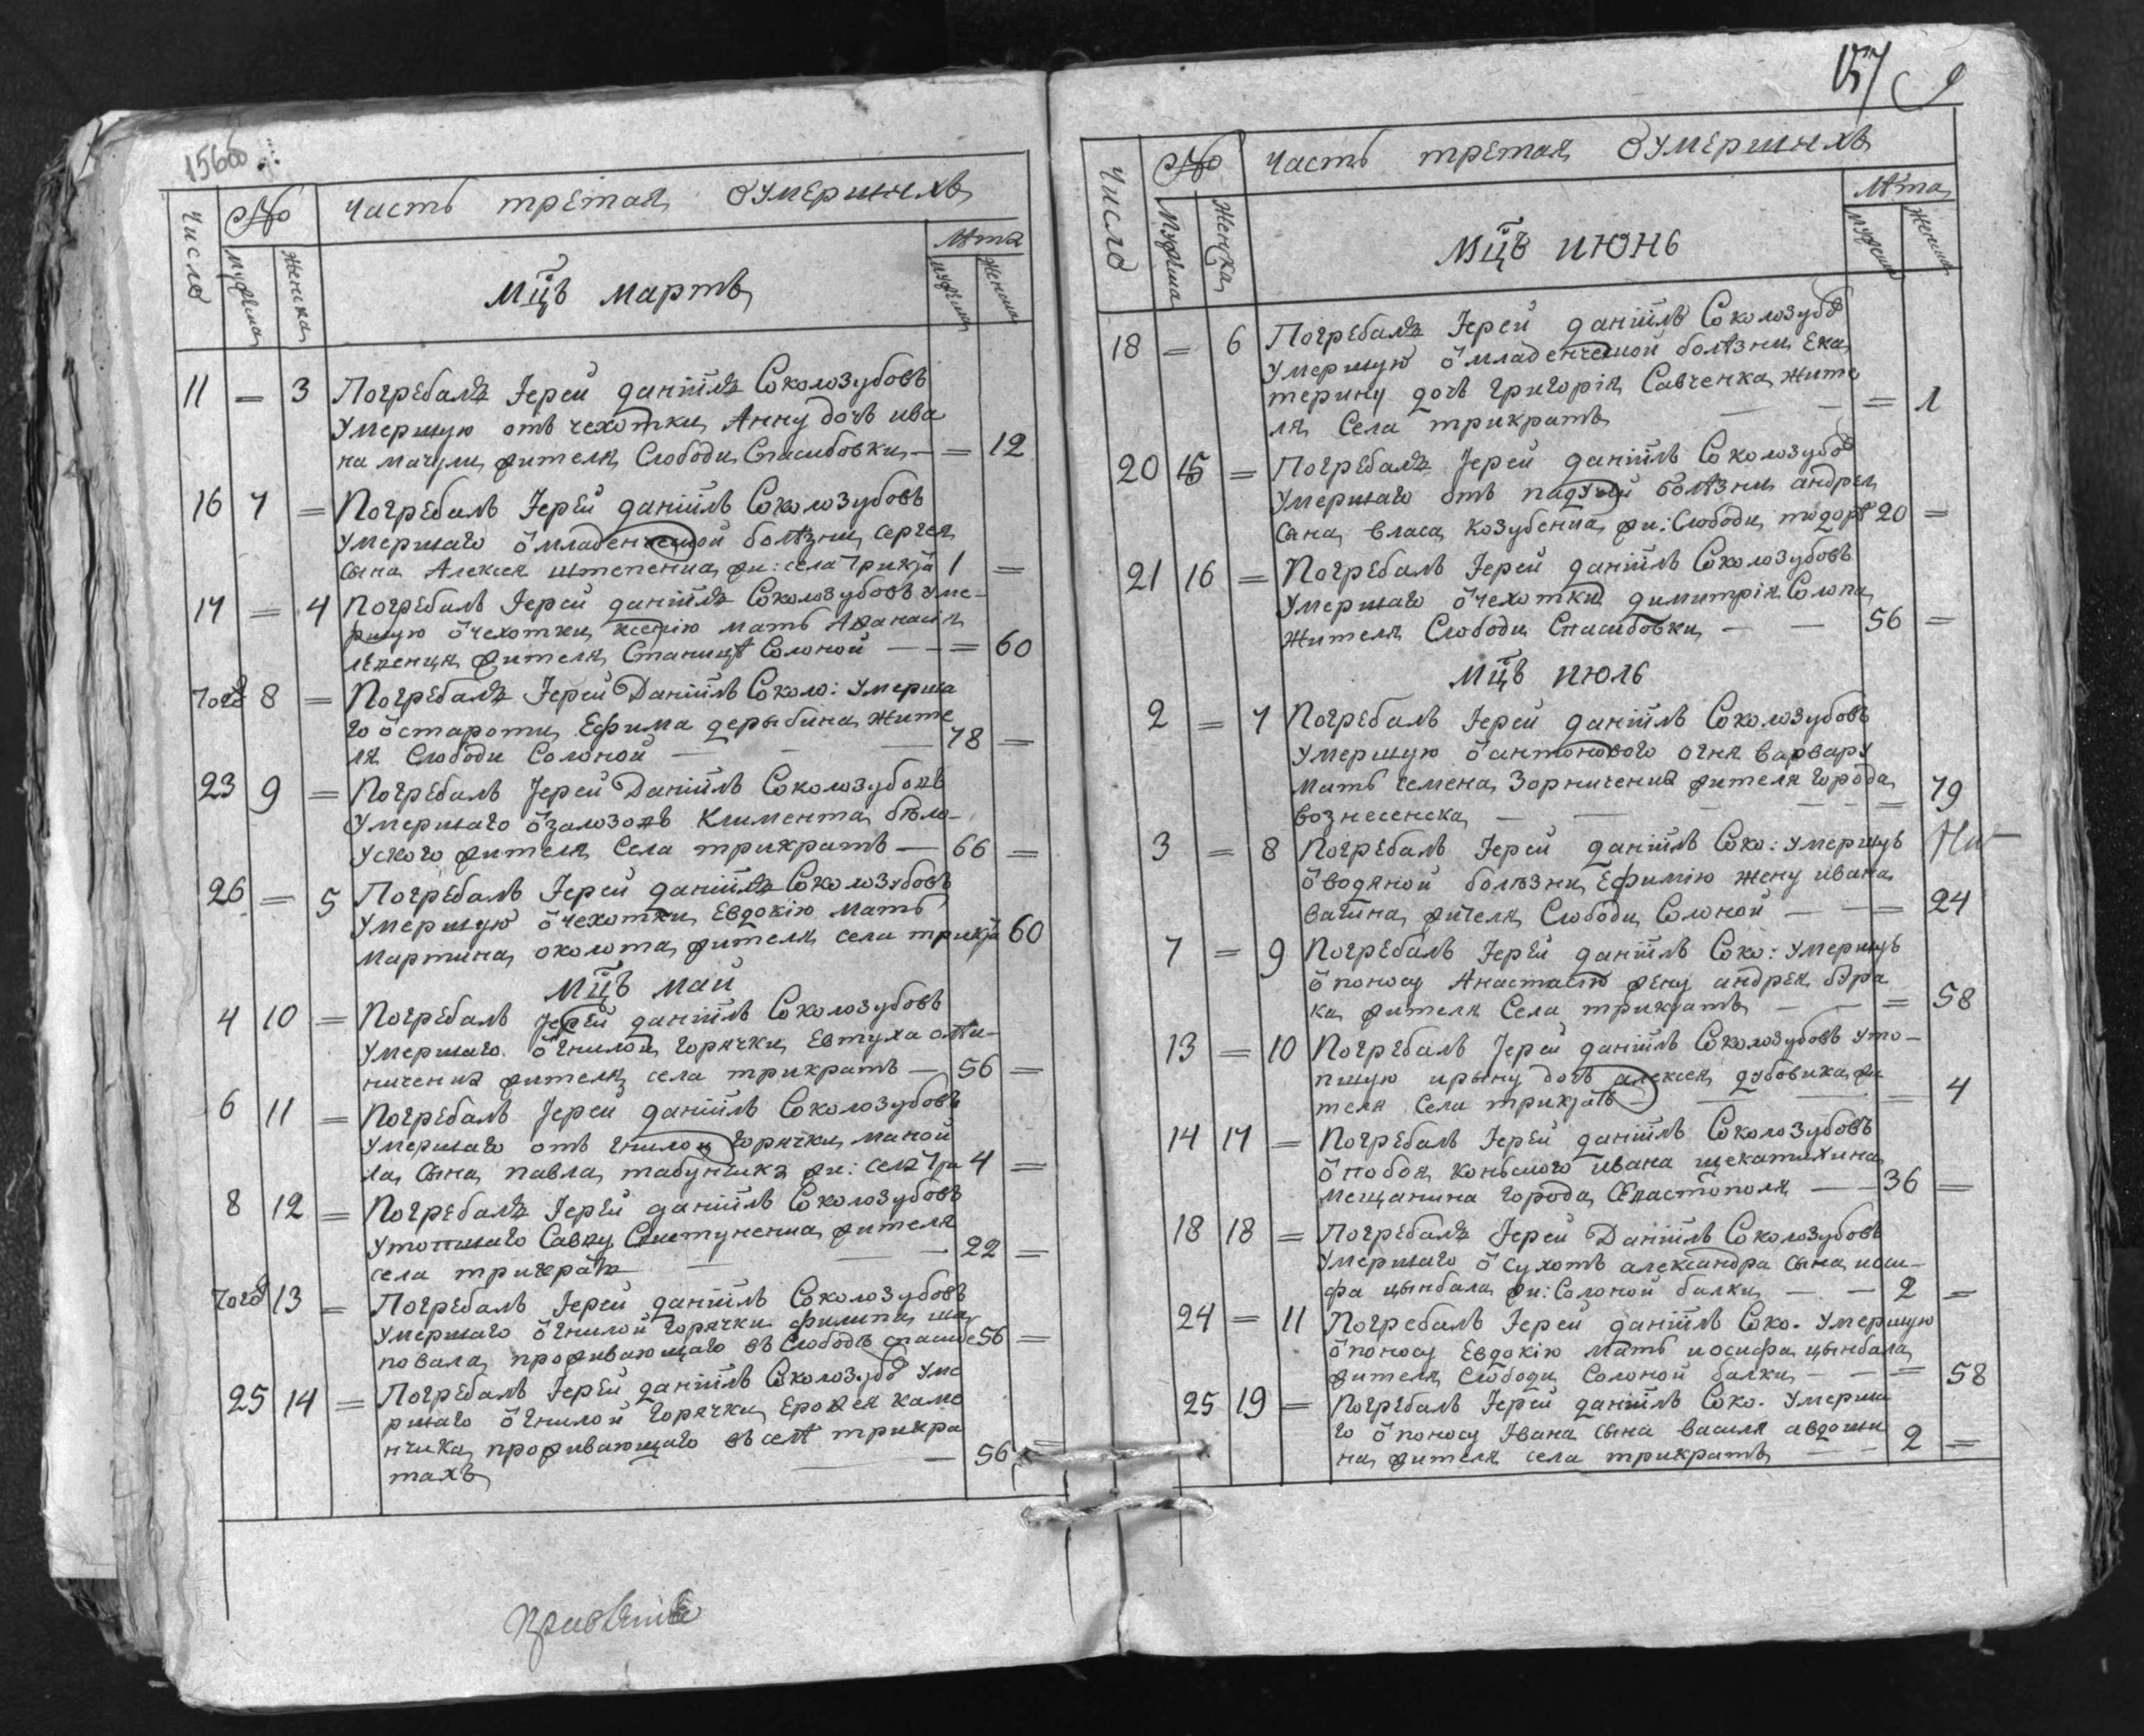 15600
Число № Часть третая О умершихъ
Мужеска Женска Лѣта
Мужеска Женска
Мцъ Мартъ
11 = 3 Погребалъ Іерей Даніилъ Соколозубовъ
умершую отъ чехотки Анну дочь ива
на мачули жителя Слободи Спасибовки — = 12
16 7 = Погребалъ Іерей Даніилъ Соколозубовъ
умершаго ѿ младенческой болѣзни Сергея
сына Алексея штепенка жи: села Трикра 1 =
17 = 4 Погребалъ Іерей Даніилъ Соколозубовъ уме-
ршую ѿ чехотки Ксенію мать Афанасія
жителя Станицѣ Солоной — = 60
Тогоѡ 8 = Погребалъ Іерей Даніилъ Соколо: умерша
го ѿ староти Ефима дерыбина жите
ля Слободи Солоной — — — 78 =
23 9 = Погребалъ Іерей Даніилъ Соколозубовъ
умершаго ѿ Климента бѣло-
уского жителя Села трикратъ — 66 =
26 = 5 Погребалъ Іерей Даніилъ Соколозубовъ
умершую ѿ чехотки Евдокію мать
мартина околота жителя села трикра 60
Мцъ май
4 10 = Погребалъ Іерей Даніилъ Соколозубовъ
умершаго ѿ гнилой горячки Евтуха
жителя села трикратъ — 56 =
6 11 = Погребалъ Іерей Даніилъ Соколозубовъ
умершаго отъ гнилой горячки маной
ла сына павла табунщика жи: села Три 4 =
8 12 = Погребалъ Іерей Даніилъ Соколозубовъ
утопшаго Савву жителя
села трикратъ — — — 22 =
Тогоѡ 13 = Погребалъ Іерей Даніилъ Соколозубовъ
умершаго ѿ гнилой горячки филипа ша
повала проживающаго въ Слободѣ спасибо 56 =
25 14 = Погребалъ Іерей Даніилъ Соколозубо уме
ршаго ѿ гнилой горячки Ерофея каме
нчика проживающаго въ селѣ трикра
тахъ — — 56 =
157 9
Число № Часть третая О умершихъ
Мужеска Женска Лѣта
Мужеска Женска
Мцъ июнь
18 = 6 Погребалъ Іерей Даніилъ Соколозубо
умершую ѿ младенческой болѣзни Ека
терину дочь Григорія Савченка жите
ля Села трикратъ — — = 1
20 15 = Погребалъ Іерей Даніилъ Соколозубо
умершаго отъ падучей болѣзни андрея
сына власа козубенка жи: Слободи тодоро 20 =
21 16 = Погребалъ Іерей Даніилъ Соколозубовъ
умершаго ѿ чехотки димитрія Солопа
жителя Слободи Спасибовки — — 56 =
Мцъ июль
2 = 7 Погребалъ Іерей Даніилъ Соколозубовъ
умершую ѿ антонового огня варвару
мать Семена Зорниченка жителя города
вознесенска — — — = 79
3 = 8 Погребалъ Іерей Даніилъ Соко: умершую
ѿ водяной болѣзни Ефимію жену ивана
вагина жителя Слободи Солоной — — = 24
7 = 9 Погребалъ Іерей Даніилъ Соко: умершую
ѿ поносу Анастасію жену андрея бура
ка жителя Села трикратъ — — = 58
13 = 10 Погребалъ Іерей Даніилъ Соколозубовъ уто-
пшую ирыну дочь алексея дубовика жи
теля Села трикратъ — — = 4
14 17 = Погребалъ Іерей Даніилъ Соколозубовъ
ѿ побоя коньского ивана щекатихина
мещанина города Севастополя — 36 =
18 18 = Погребалъ Іерей Даніилъ Соколозубовъ
умершаго ѿ сухотъ александра сына иоси-
фа цымбала жи: Солоной балки — — 2 =
24 = 11 Погребалъ Іерей Даніилъ Соко. умершую
ѿ поносу Евдокію мать иосифа цымбала
жителя Слободи Солоной балки — — = 58
25 19 = Погребалъ Іерей Даніилъ Соко. умерша
го ѿ поносу Ивана сына василя авдоши
на жителя села трикратъ — — 2 =